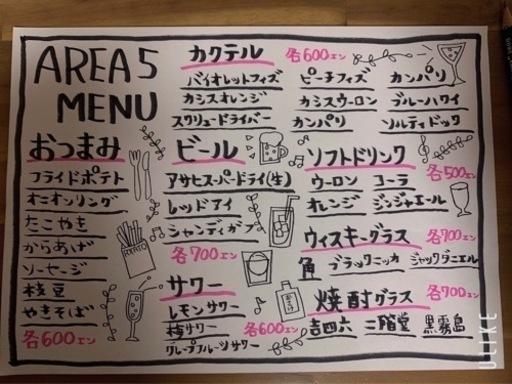 AREA5
MENU
カクテル 各600エン
バイオレットフィズ ピーチフィズ カンパリ
カシスオレンジ カシスウーロン ブルーハワイ
スクリュードライバー カンパリ ソルティドック
おつまみ
フライドポテト
オニオンリング
たこやき
からあげ
ソーセージ
枝豆
やきそば
各600エン
POTATO
ビール
アサヒスーパードライ(生)
レッドアイ
シャンディガフ
各700エン
サワー
レモンサワー
梅サワー 各600エン
グレープフルーツサワー
ソフトドリンク
各500エン
ウーロン コーラ
オレンジ ジンジャエール
ウィスキーグラス 各700エン
角 ブラックニッカ ジャックダニエル
焼酎グラス 各700エン
吉四六 二階堂 黒霧島
ULIKE